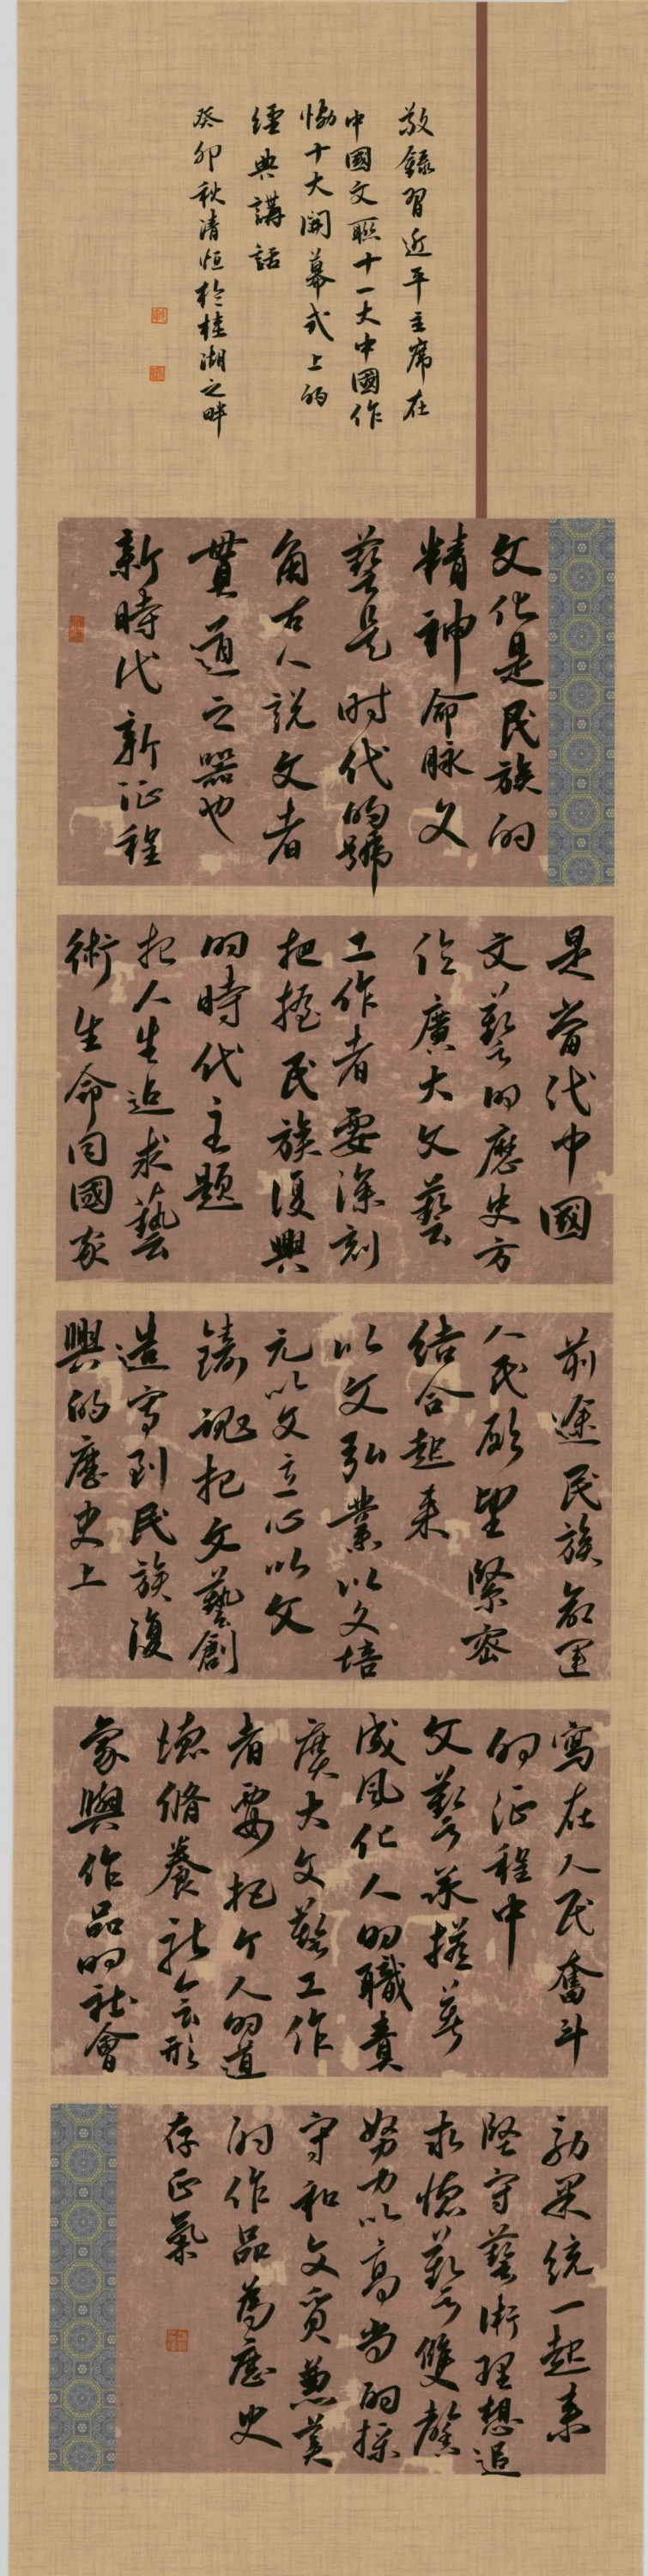 敬録習近平主席在
中國文聯十一大中國作
協十大開幕式上的
經典講話
癸卯秋清恒於桂湖之畔
文化是民族的
精神命脉文
藝是时代的號
角古人説文者
貫道之器也
新時代新征程
是當代中國
文藝的歷史方
位廣大文藝
工作者要深刻
把握民族復興
的時代主題
把人生追求藝
術生命同國家
前途民族命運
人民願望緊密
结合起来
以文弘業以文培
元以文立心以文
鑄魂把文藝創
造寫到民族復
興的歷史上
寫在人民奮斗
的征程中
文藝承擔着
成風化人的職責
廣大文藝工作
者要把个人的道
德脩養社会形
象與作品的社會
効果統一起来
堅守藝術理想追
求德藝雙馨
努力以高尚的操
守和文質兼美
的作品為歷史
存正氣